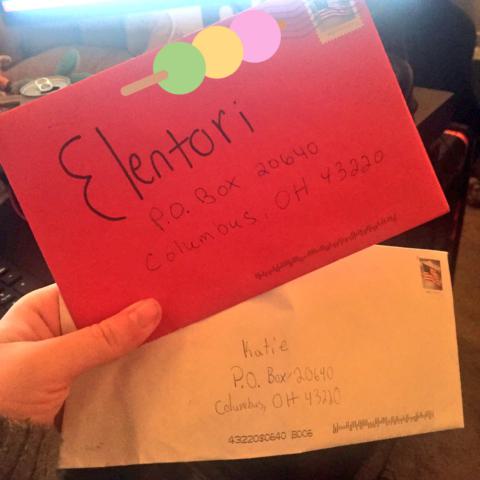 Elentori
P.O. Box 20640
Columbus, OH 43220
Katie
P.O. Box 20640
Columbus, OH 43220
43220$0640 B006